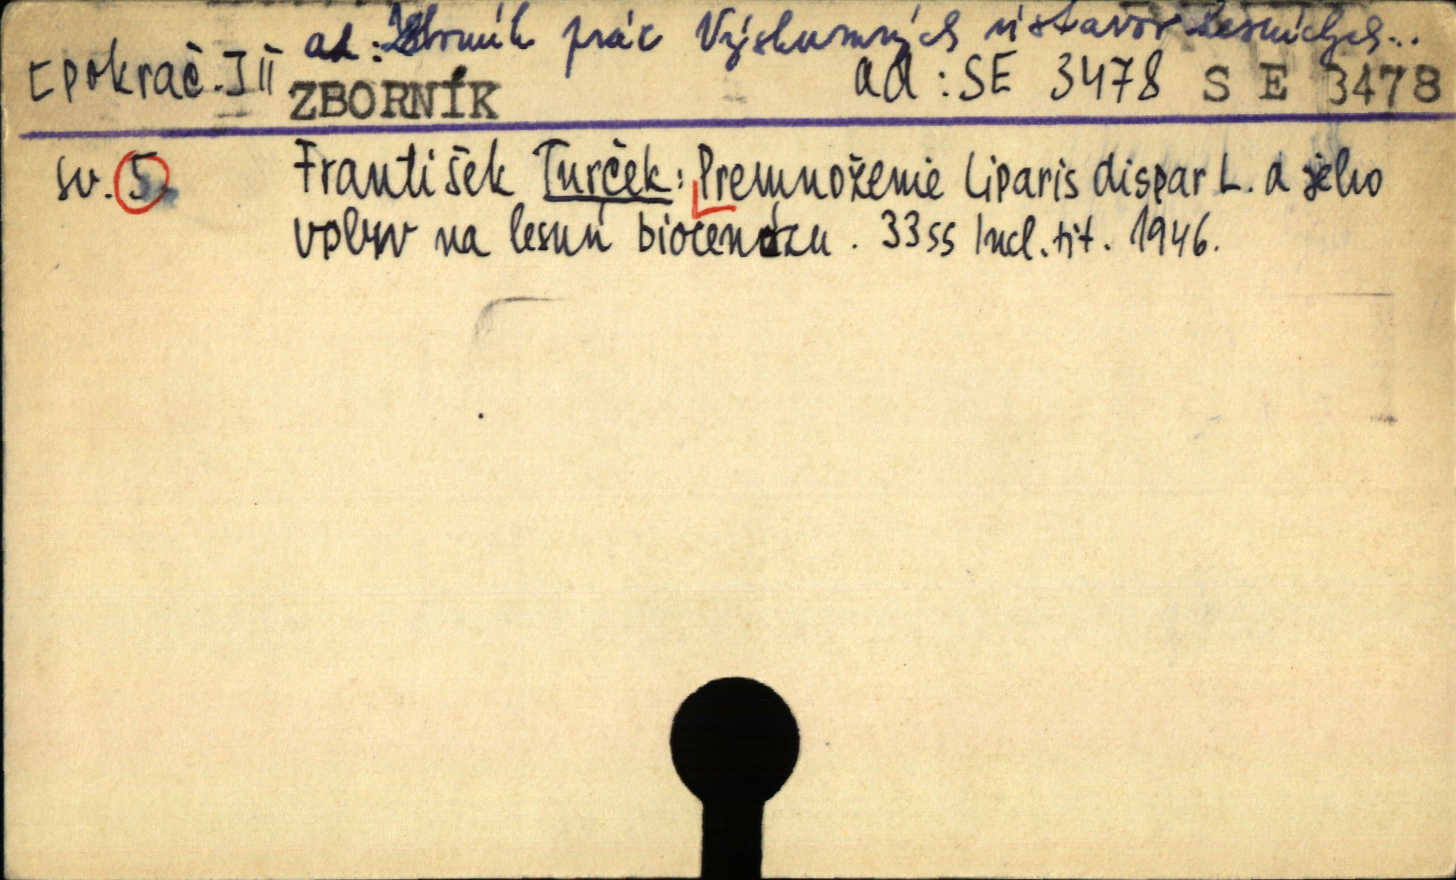 ad: Zborník prác Výskumných ústavov lesníckych...
[pokrač.] II ZBORNÍK ad: SE 3478 SE 3478
sv. 5. František Turček: Premnoženie Liparis dispar L. a jeho
vplyv na lesnú biocenózu. 33 ss Incl. tit. 1946.